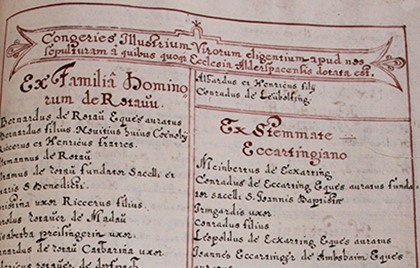 Congeries Illustrium Virorum eligentium apud nos
sepulturam à quibus quoq Ecclesia Alderspacensis dotata est.
Ex Familiâ Domino
rum de Rotaŭŭ.
Bernardus de Rotaŭ Eques auratus
Bernardus filius Novitius huius Coenobÿ
Riccerus et Henricus fratres.
mannus de Rotaŭ
de Rotaŭ fundator Sacelli et
S. Benedicti.
uxor Riccerus filius.
rotaŭer de Madaŭ
preisingerin uxor.
de rotaŭ Catharina uxor.
rotauer de
Alhardus et Henricus filÿ
Conradus de Leubolfing.
Ex Stemmate
Eccartingiano
Meinbertus de Eckarting
Conradus de Eccarting Eques auratus funda
tor sacelli S. Joannis Baptistæ
Irmgardis uxor
Conradus filius
Leopoldus de Eckarting Eques auratus
Joannes Eccartinger de Eques